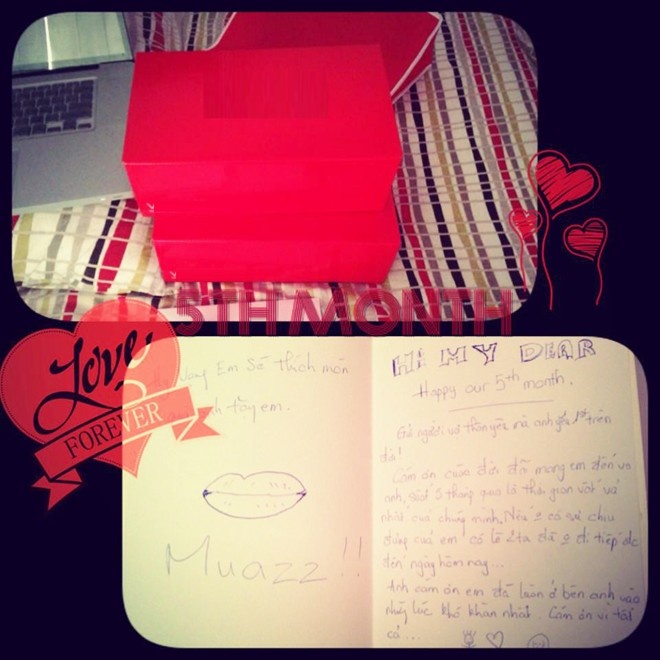 5TH MONTH
Love
FOREVER
vọng Em Sẽ thích món
tặng em.
Muazz !!
Hi MY DEAR
Happy our 5th month.
Gửi người vợ thân yêu mà anh yêu 1st trên
đời!
Cám ơn cuộc đời đã mang em đến với
anh, suốt 5 tháng qua là thời gian vất vả
nhất của chúng mình. Nếu o có sự chịu
đựng của em có lẽ 2 ta đã o đi tiếp đc
đến ngày hôm nay...
Anh cám ơn em đã luôn ở bên anh vào
những lúc khó khăn nhất. Cám ơn vì tất
cả...